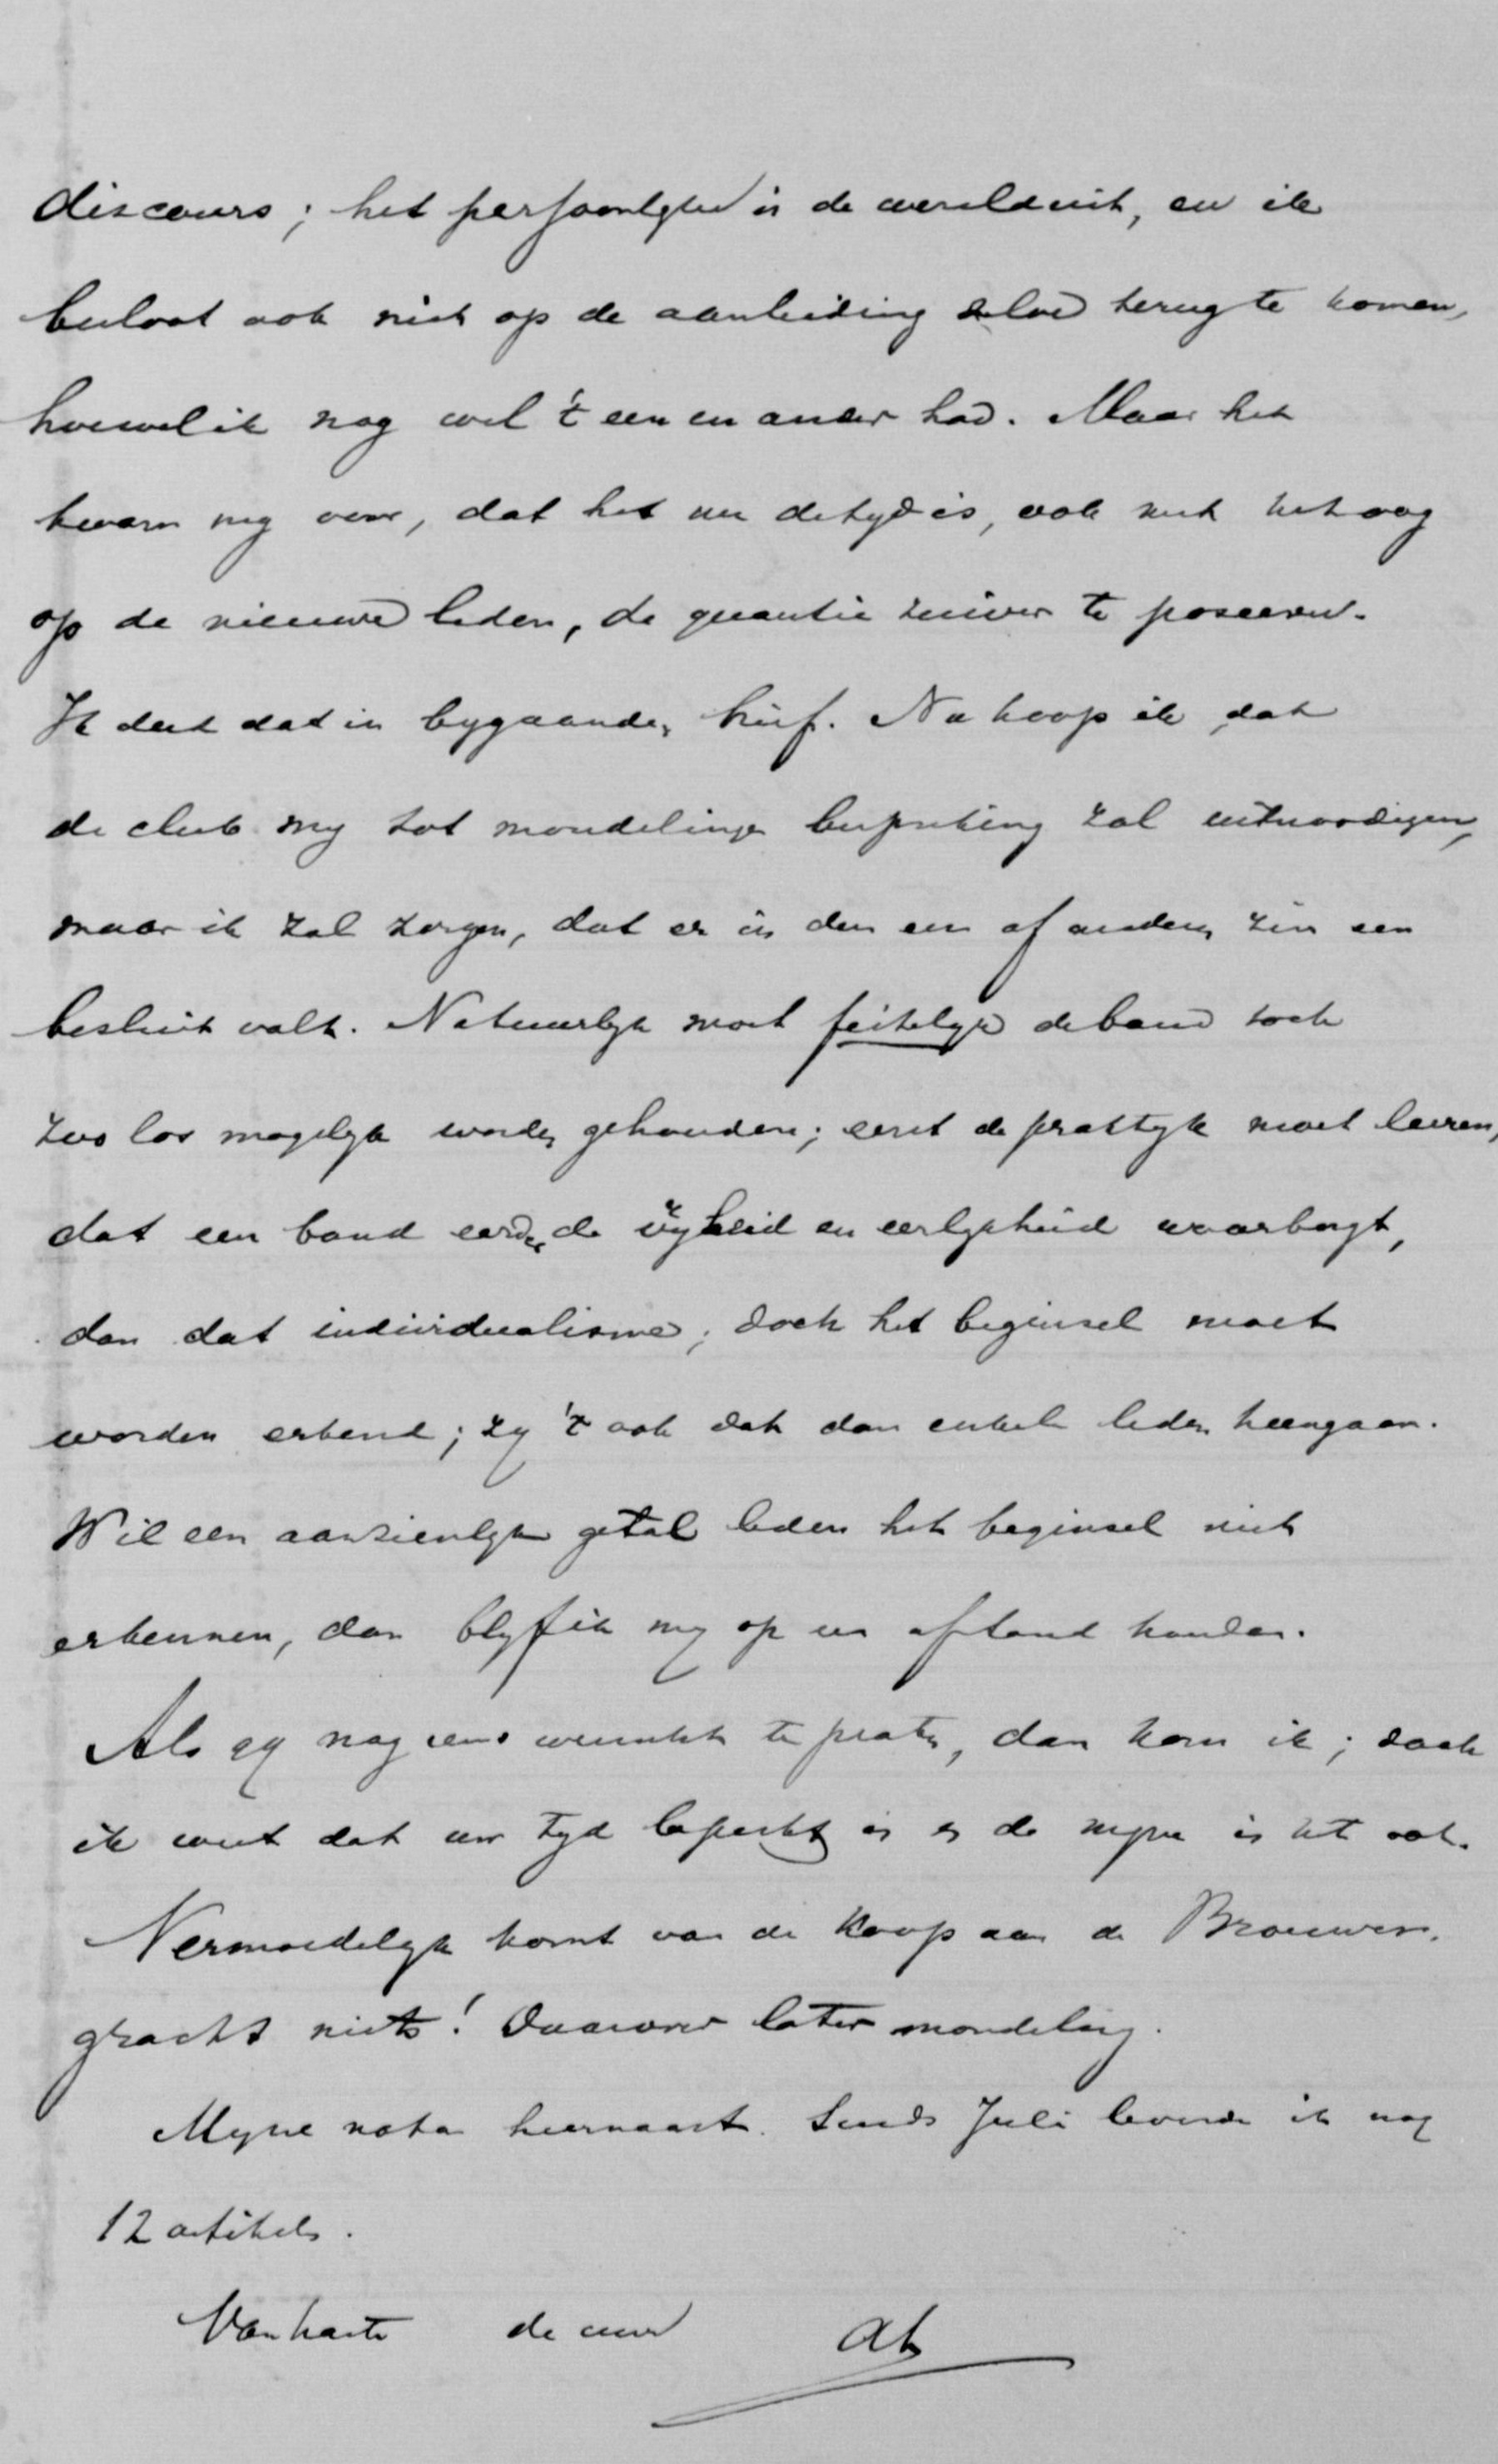 discours; het persoonlyke is de wereld uit, en ik
besloot ook niet op de aanleiding zelve terug te komen,
hoewel ik nog wel 't een en ander had. Maar het
kwam my voor, dat het nu de tyd is, ook met het oog
op de nieuwe leden, de quaestie zuiver te poseeren.
Ik deed dat in bygaanden brief. Nu hoop ik, dat
de club my tot mondelinge bespreking zal uitnoodigen,
maar ik zal zorgen, dat er in den een of anderen zin een
besluit valt. Natuurlyk moet feitelyk de band toch
zoo los mogelyk worden gehouden; eerst de praktyk moet leeren,
dat een band eerder de vryheid en eerlykheid waarborgt,
dan dat individualisme; doch het beginsel moet
worden erkend; zy 't ook dat dan enkele leden heengaan.
Wil een aanzienlyk getal leden het beginsel niet
erkennen, dan blyf ik my op een afstand houden.
Als gy nog eens wenscht te praten, dan kom ik; doch
ik weet dat uw tyd beperkt is en de myne is het ook.
Vermoedelyk komt van de koop aan de Brouwers-
gracht niets! Daarover later mondeling.
Myne nota hiernaast. Sinds Juli leverde ik nog
12 artikels.
Van harte de uwe